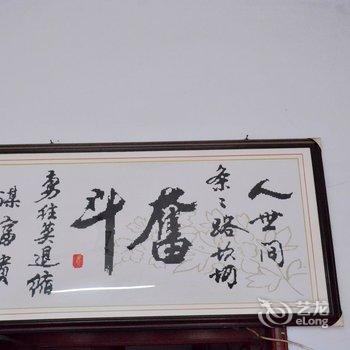 人世间
条々路坎坷
奋斗
勇往莫退缩
谋富贵
艺龙
eLong